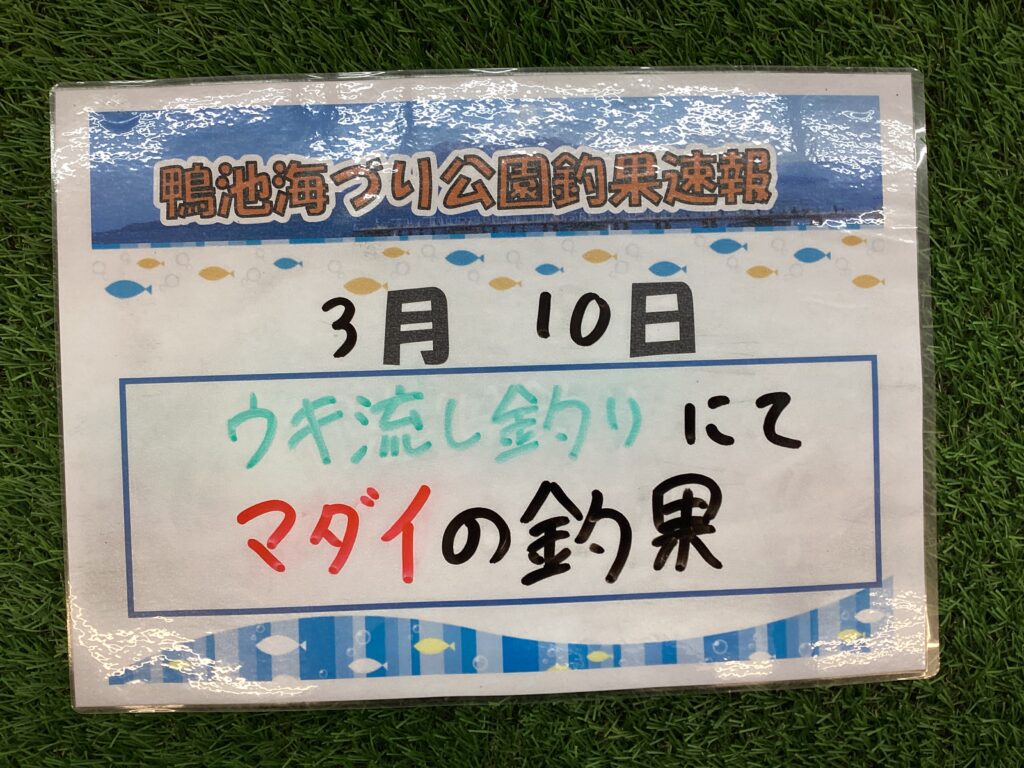 鴨池海づり公園釣果速報
3月 10日
ウキ流し釣り にて
マダイの釣果